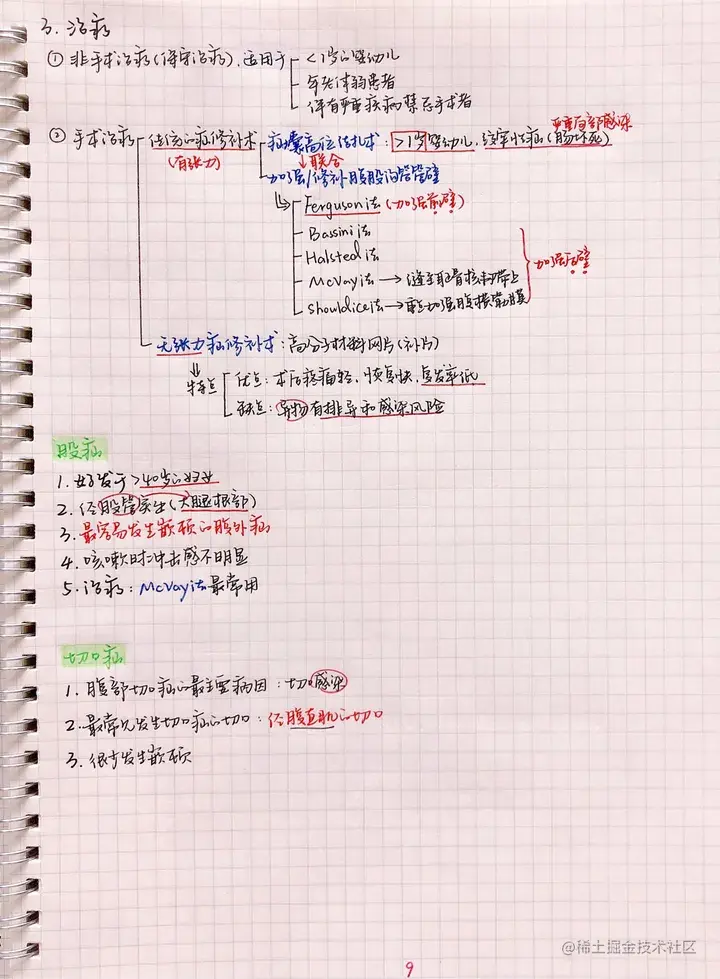 3. 治疗
① 非手术治疗(保守治疗), 适用于 <1岁的婴幼儿
年老体弱患者
伴有严重疾病禁忌手术者
严重局部感染
② 手术治疗 传统的疝修补术 疝囊高位结扎术: >1岁婴幼儿, 绞窄性疝(肠坏死)
(有张力) 联合
加强/修补腹股沟管管壁
Ferguson法 (加强前壁)
Bassini法
Halsted法
McVay法 → 缝至耻骨梳韧带上 加强后壁
shouldice法 → 重点加强腹横筋膜
无张力疝修补术: 高分子材料网片(补片)
特点 优点: 术后疼痛轻, 恢复快, 复发率低
缺点: 异物有排异和感染风险
股疝
1. 好发于>40岁的妇女
2. 经股管突出(大腿根部)
3. 最容易发生嵌顿的腹外疝
4. 咳嗽时冲击感不明显
5. 治疗: McVay法最常用
切口疝
1. 腹部切口疝的最主要病因: 切口感染
2. 最常见发生切口疝的切口: 经腹直肌的切口
3. 很少发生嵌顿
9
@稀土掘金技术社区